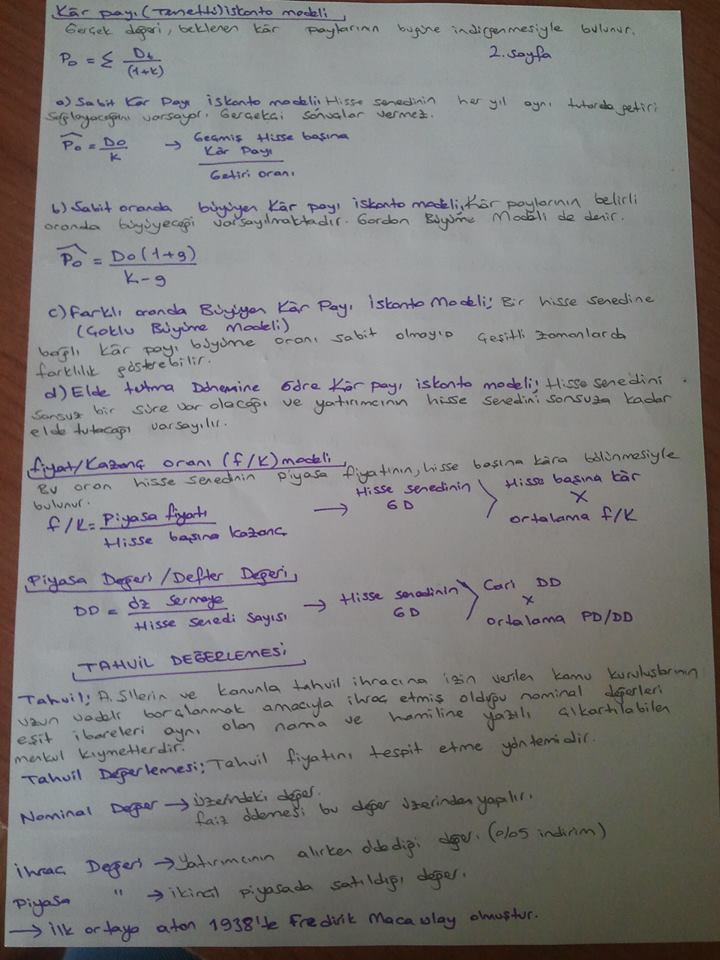 Kâr payı (Temettü) iskonto modeli
Gerçek değeri, beklenen kâr paylarının bugüne indirgenmesiyle bulunur.
P₀ = Σ Dt / (1+k)
2. sayfa
a) Sabit Kâr Payı iskonto modeli; Hisse senedinin her yıl aynı tutarda getiri
sağlayacağını varsayar. Gerçekçi sonuçlar vermez.
P₀ = D₀ / k → Geçmiş Hisse başına Kâr Payı / Getiri oranı
b) Sabit oranda büyüyen Kâr payı iskonto modeli; Kâr paylarının belirli
oranda büyüyeceği varsayılmaktadır. Gordon Büyüme Modeli de denir.
P₀ = D₀ (1+g) / k-g
c) Farklı oranda Büyüyen Kâr Payı İskonto Modeli; Bir hisse senedine
(Çoklu Büyüme Modeli)
bağlı kâr payı büyüme oranı sabit olmayıp çeşitli zamanlarda
farklılık gösterebilir.
d) Elde tutma Dönemine Göre Kâr payı iskonto modeli; Hisse senedini
sonsuz bir süre var olacağı ve yatırımcının hisse senedini sonsuza kadar
elde tutacağı varsayılır.
fiyat/Kazanç oranı (f/K) modeli
Bu oran hisse senedinin piyasa fiyatının, hisse başına kâra bölünmesiyle
bulunur.
f/K = Piyasa fiyatı / Hisse başına kazanç → Hisse senedinin GD > Hisse başına kâr X ortalama f/K
Piyasa Değeri / Defter Değeri
DD = öz sermaye / Hisse senedi sayısı → Hisse senedinin GD > Cari DD X ortalama PD/DD
TAHVİL DEĞERLEMESİ
Tahvil; A.Şlerin ve kanunla tahvil ihracına izin verilen kamu kuruluşlarının
uzun vadeli borçlanmak amacıyla ihraç etmiş olduğu nominal değerleri
eşit ibareleri aynı olan nama ve hamiline yazılı çıkartılabilen
menkul kıymetlerdir.
Tahvil Değerlemesi; Tahvil fiyatını tespit etme yöntemidir.
Nominal Değer → üzerindeki değer.
faiz ödemesi bu değer üzerinden yapılır.
İhraç Değeri → Yatırımcının alırken ödediği değer. (%05 indirim)
Piyasa " → ikincil piyasada satıldığı değer.
→ ilk ortaya atan 1938'te Fredirik Macawlay olmuştur.